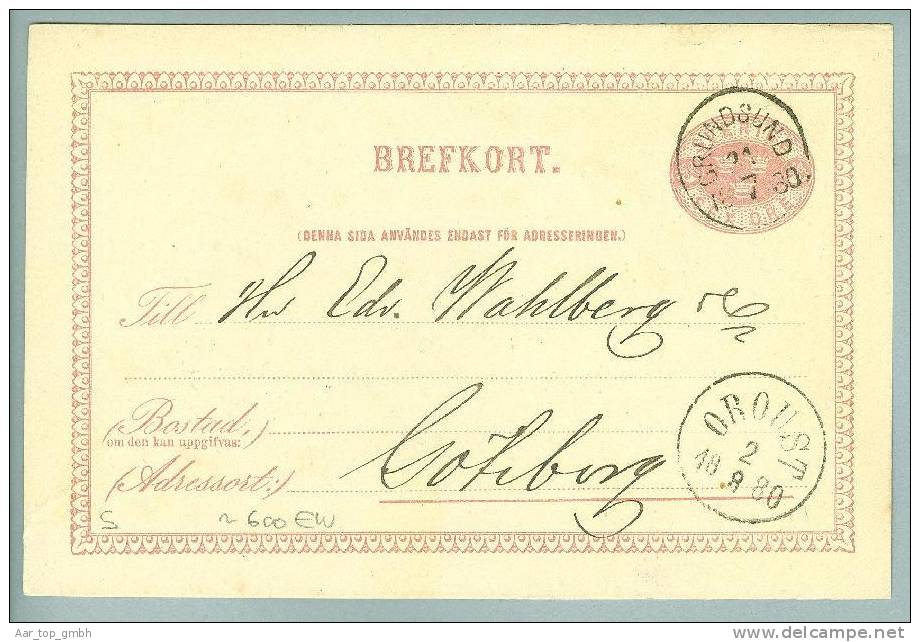 BREFKORT.
GRUNDSUND
7
(DENNA SIDA ANVÄNDES ENDAST FÖR ADRESSERINGEN.)
Till Hr Edv. Wahlberg
(Bostad,
om den kan uppgifvas:)
OROUST
2
10 8 80
(Adressort:) Götheborg
S ~ 600 EW
Aar_top_gmbh
www.delcampe.net